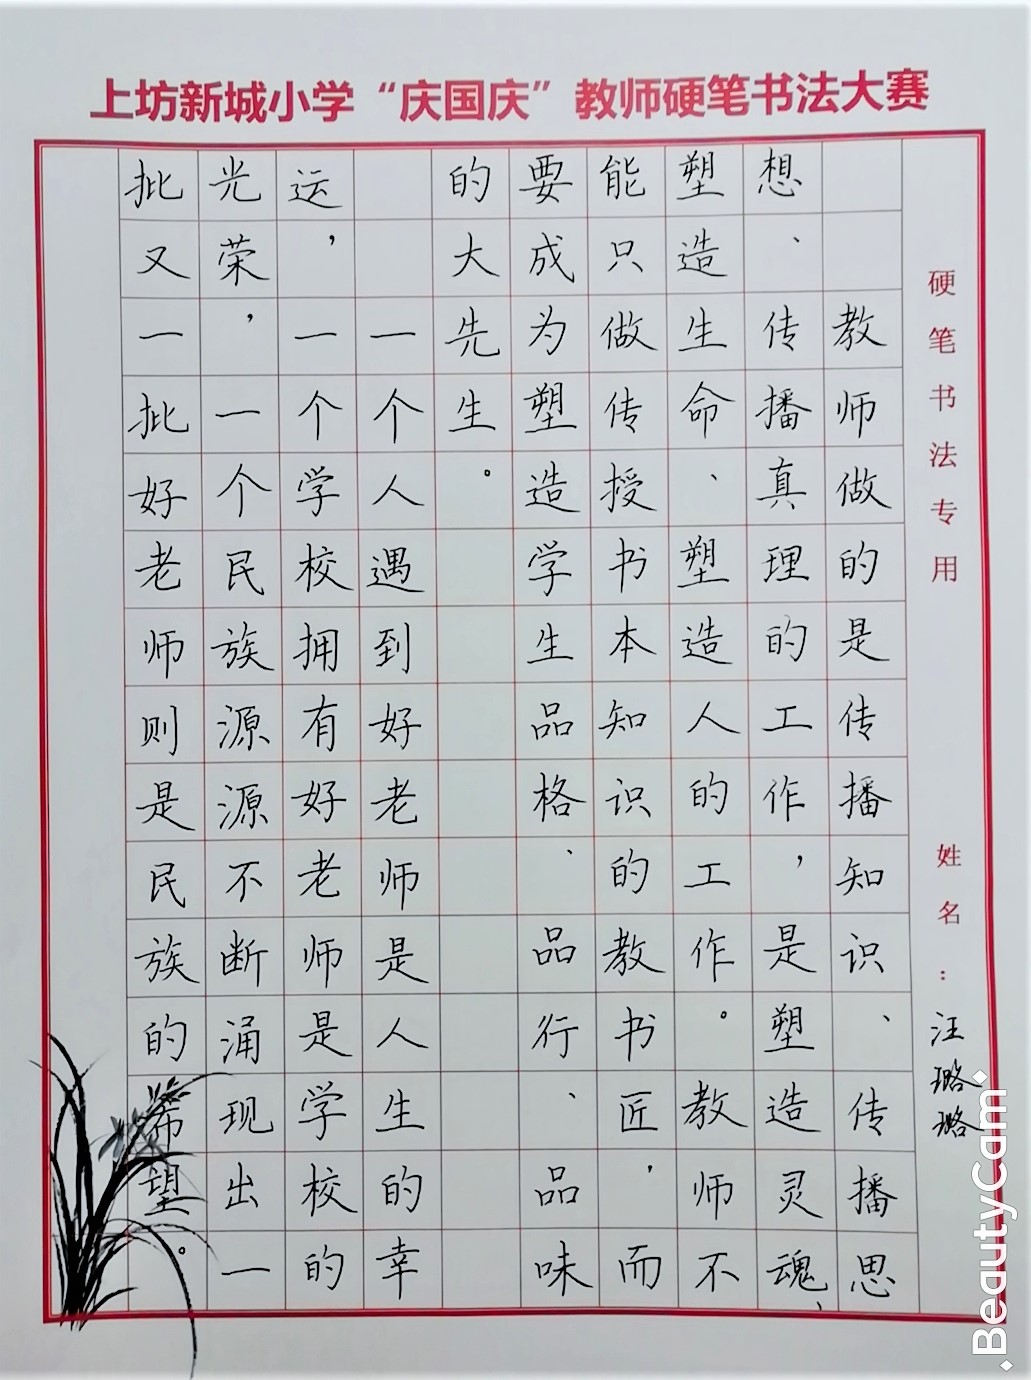 上坊新城小学“庆国庆”教师硬笔书法大赛
硬笔书法专用
姓名：汪璐璐
教师做的是传播知识、传播思
想、传播真理的工作，是塑造灵魂、
塑造生命、塑造人的工作。教师不
能只做传授书本知识的教书匠，而
要成为塑造学生品格、品行、品味
的大先生。
一个人遇到好老师是人生的幸
运，一个学校拥有好老师是学校的
光荣，一个民族源源不断涌现出一
批又一批好老师则是民族的希望。
·BeautyCam·